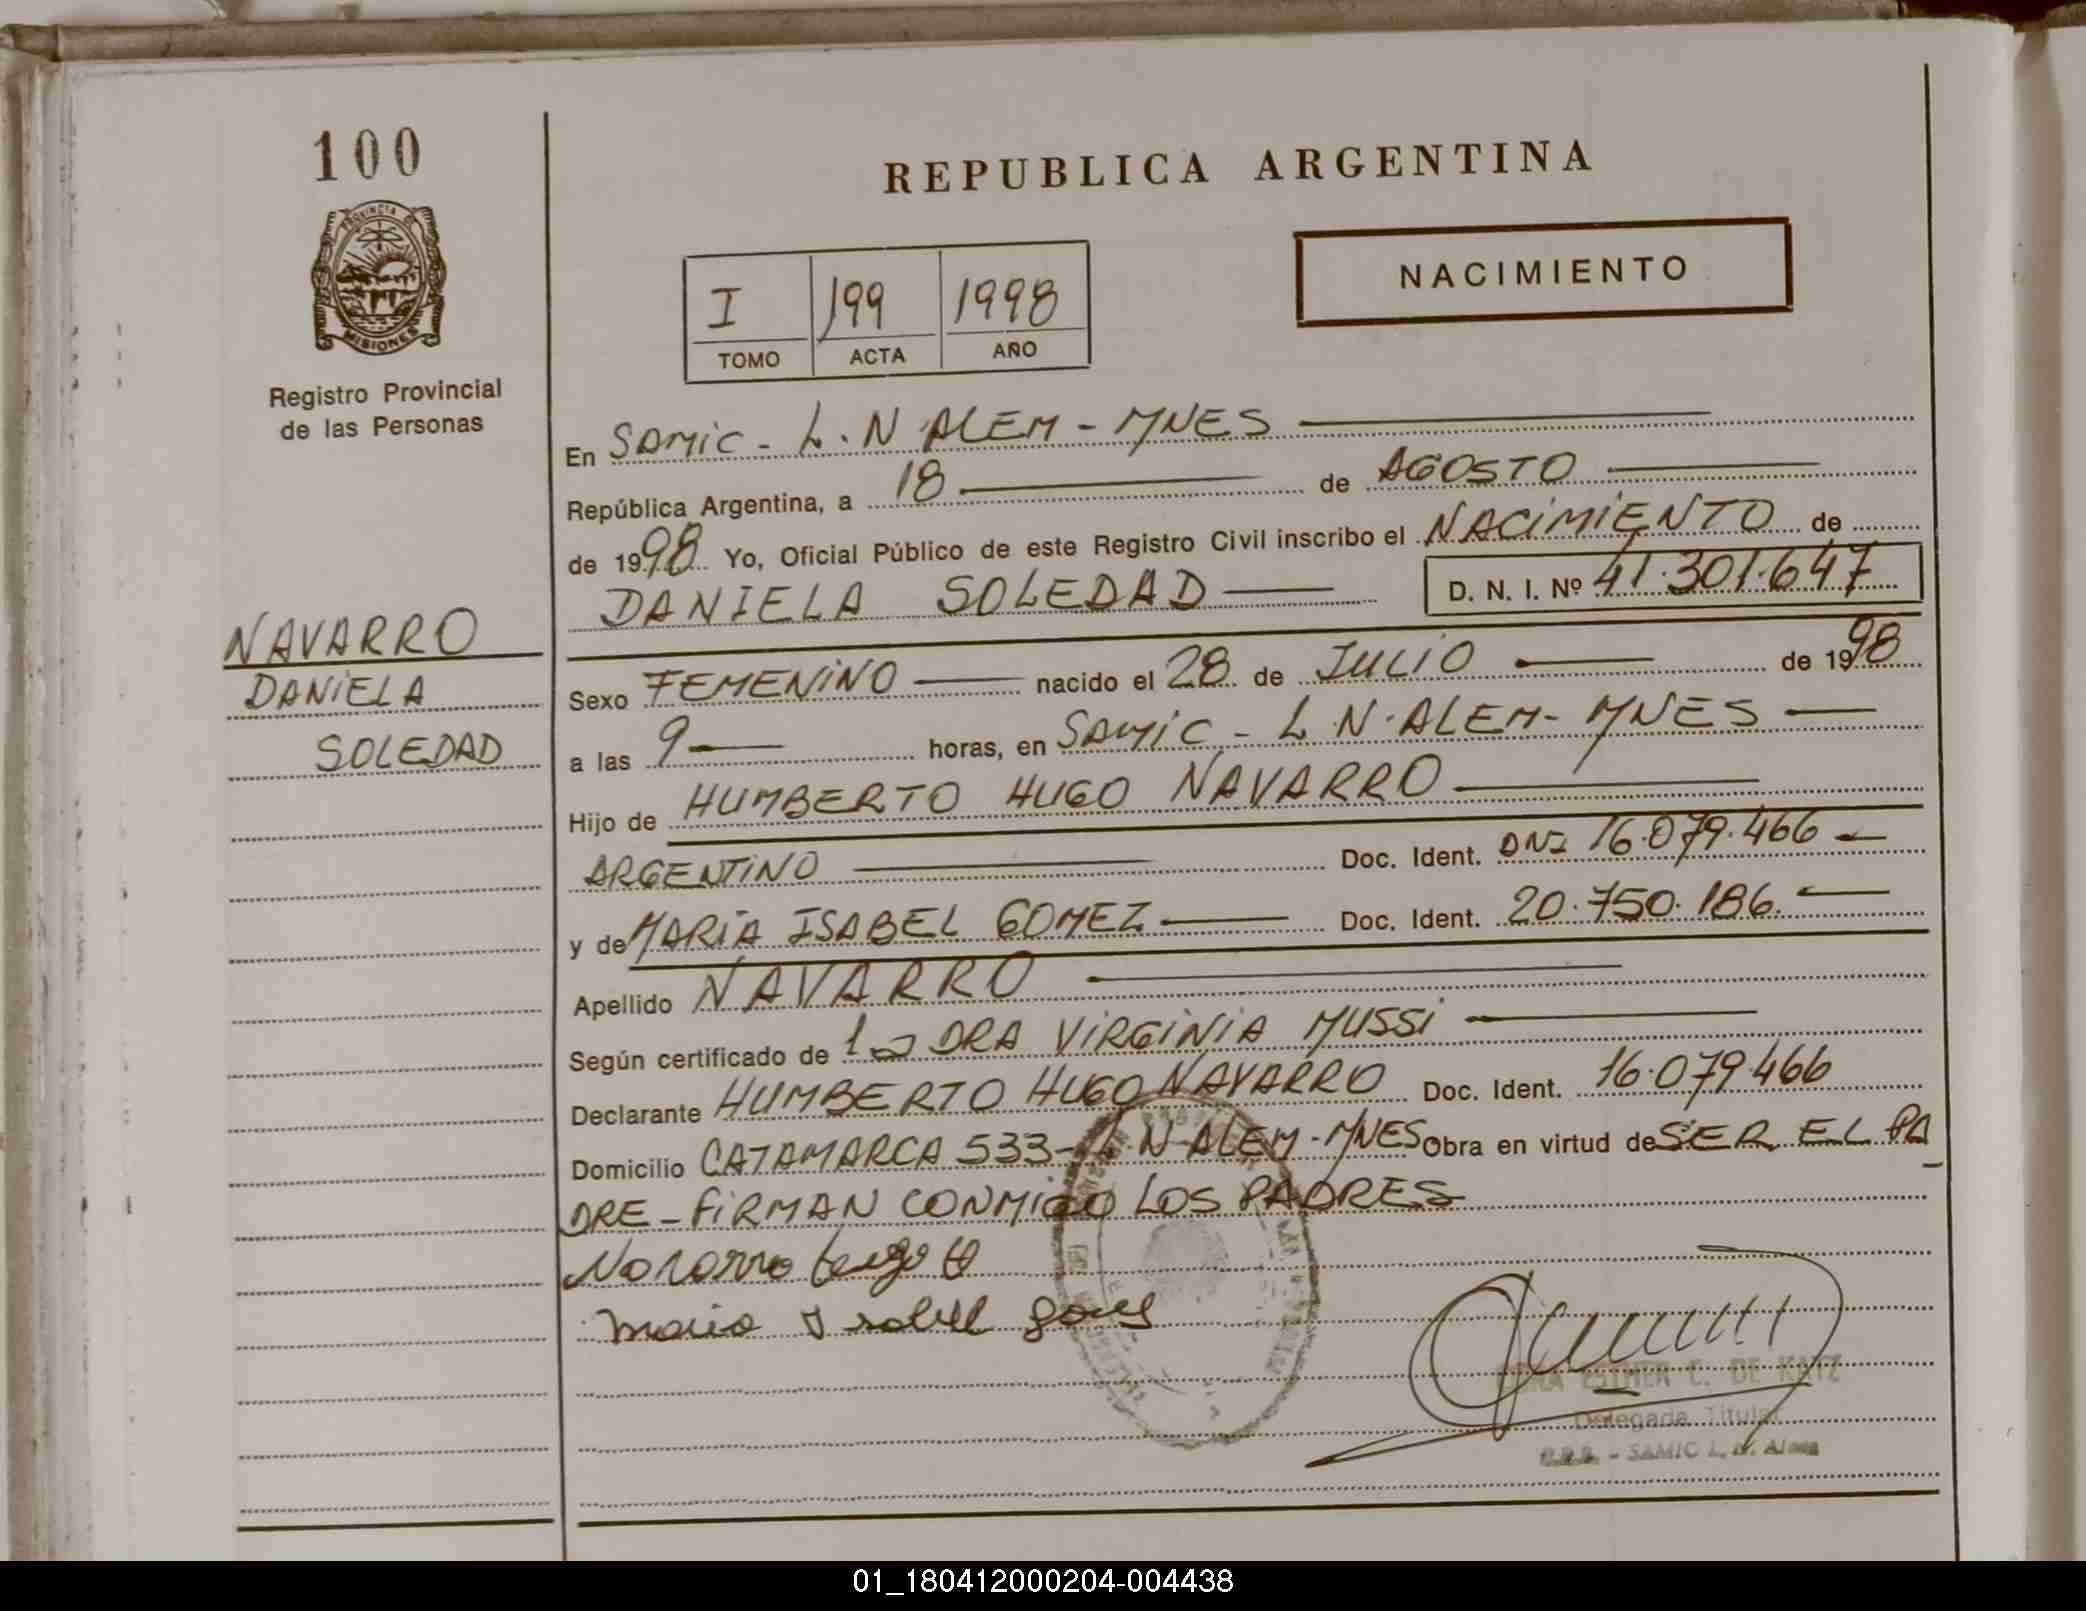 100
PROVINCIA DE
MISIONES
Registro Provincial
de las Personas
NAVARRO
DANIELA
SOLEDAD
REPUBLICA ARGENTINA
NACIMIENTO
I 199 1998
TOMO ACTA AÑO
En SAMIC - L. N ALEM - MNES
República Argentina, a 18 de AGOSTO
de 1998 Yo, Oficial Público de este Registro Civil inscribo el NACIMIENTO de
DANIELA SOLEDAD D. N. I. Nº 41.301.647
Sexo FEMENINO nacido el 28 de JULIO de 1998
a las 9 horas, en SAMIC - L. N. ALEM - MNES
Hijo de HUMBERTO HUGO NAVARRO
ARGENTINO Doc. Ident. DNI 16.079.466
y de MARIA ISABEL GOMEZ Doc. Ident. 20.750.186.
Apellido NAVARRO
Según certificado de DRA VIRGINIA MUSSI
Declarante HUMBERTO HUGO NAVARRO Doc. Ident. 16.079.466
Domicilio CATAMARCA 533 - L. N ALEM - MNES Obra en virtud de SER EL PA
DRE - FIRMAN CONMIGO LOS PADRES
Navarro Hugo H
Maria Isabel Gomez
ESTHER C. DE KATZ
Delegada Titular
- SAMIC L. N. Alem
01_180412000204-004438